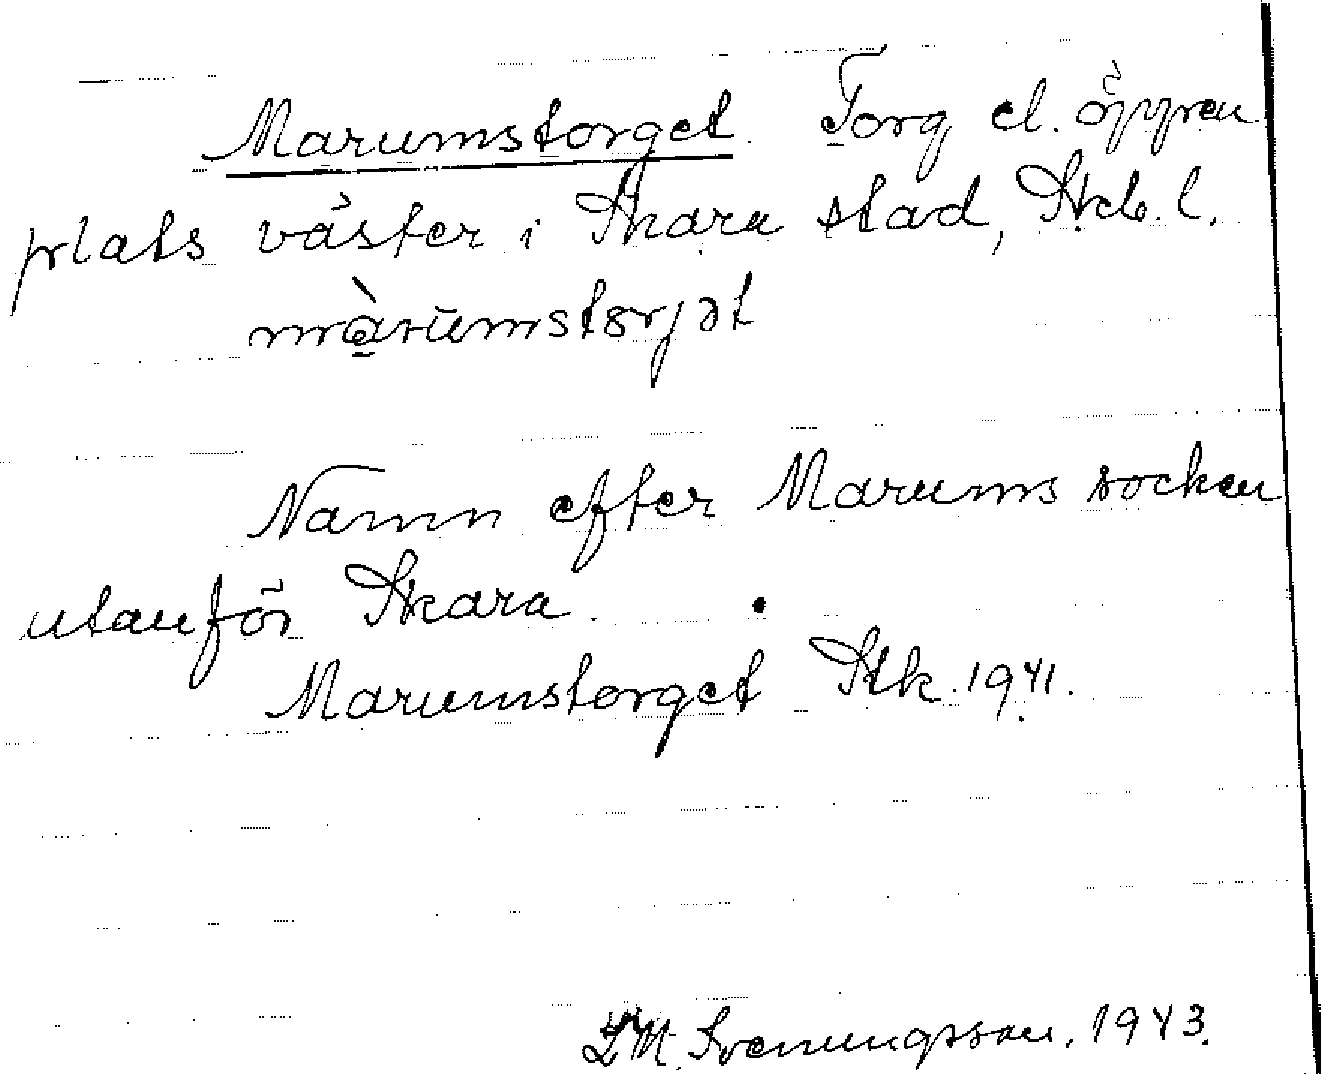 Marumstorget. Torg el. öppen
plats väster i Skara stad, Skb. l.
màrumstorjət
Namn efter Marums socken
utanför Skara.
Marumstorget Stk. 1941.
Svenungsson, 1943.